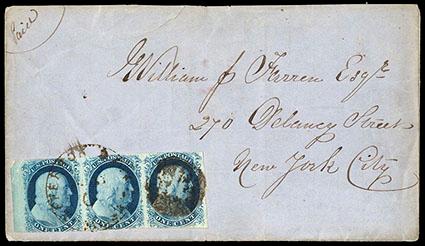 Paid
William J Farren Esqr
270 Delancy Street
New York City
U.S. POSTAGE
U.S. POSTAGE
U.S. POSTAGE
ONE CENT
ONE CENT
ONE CENT